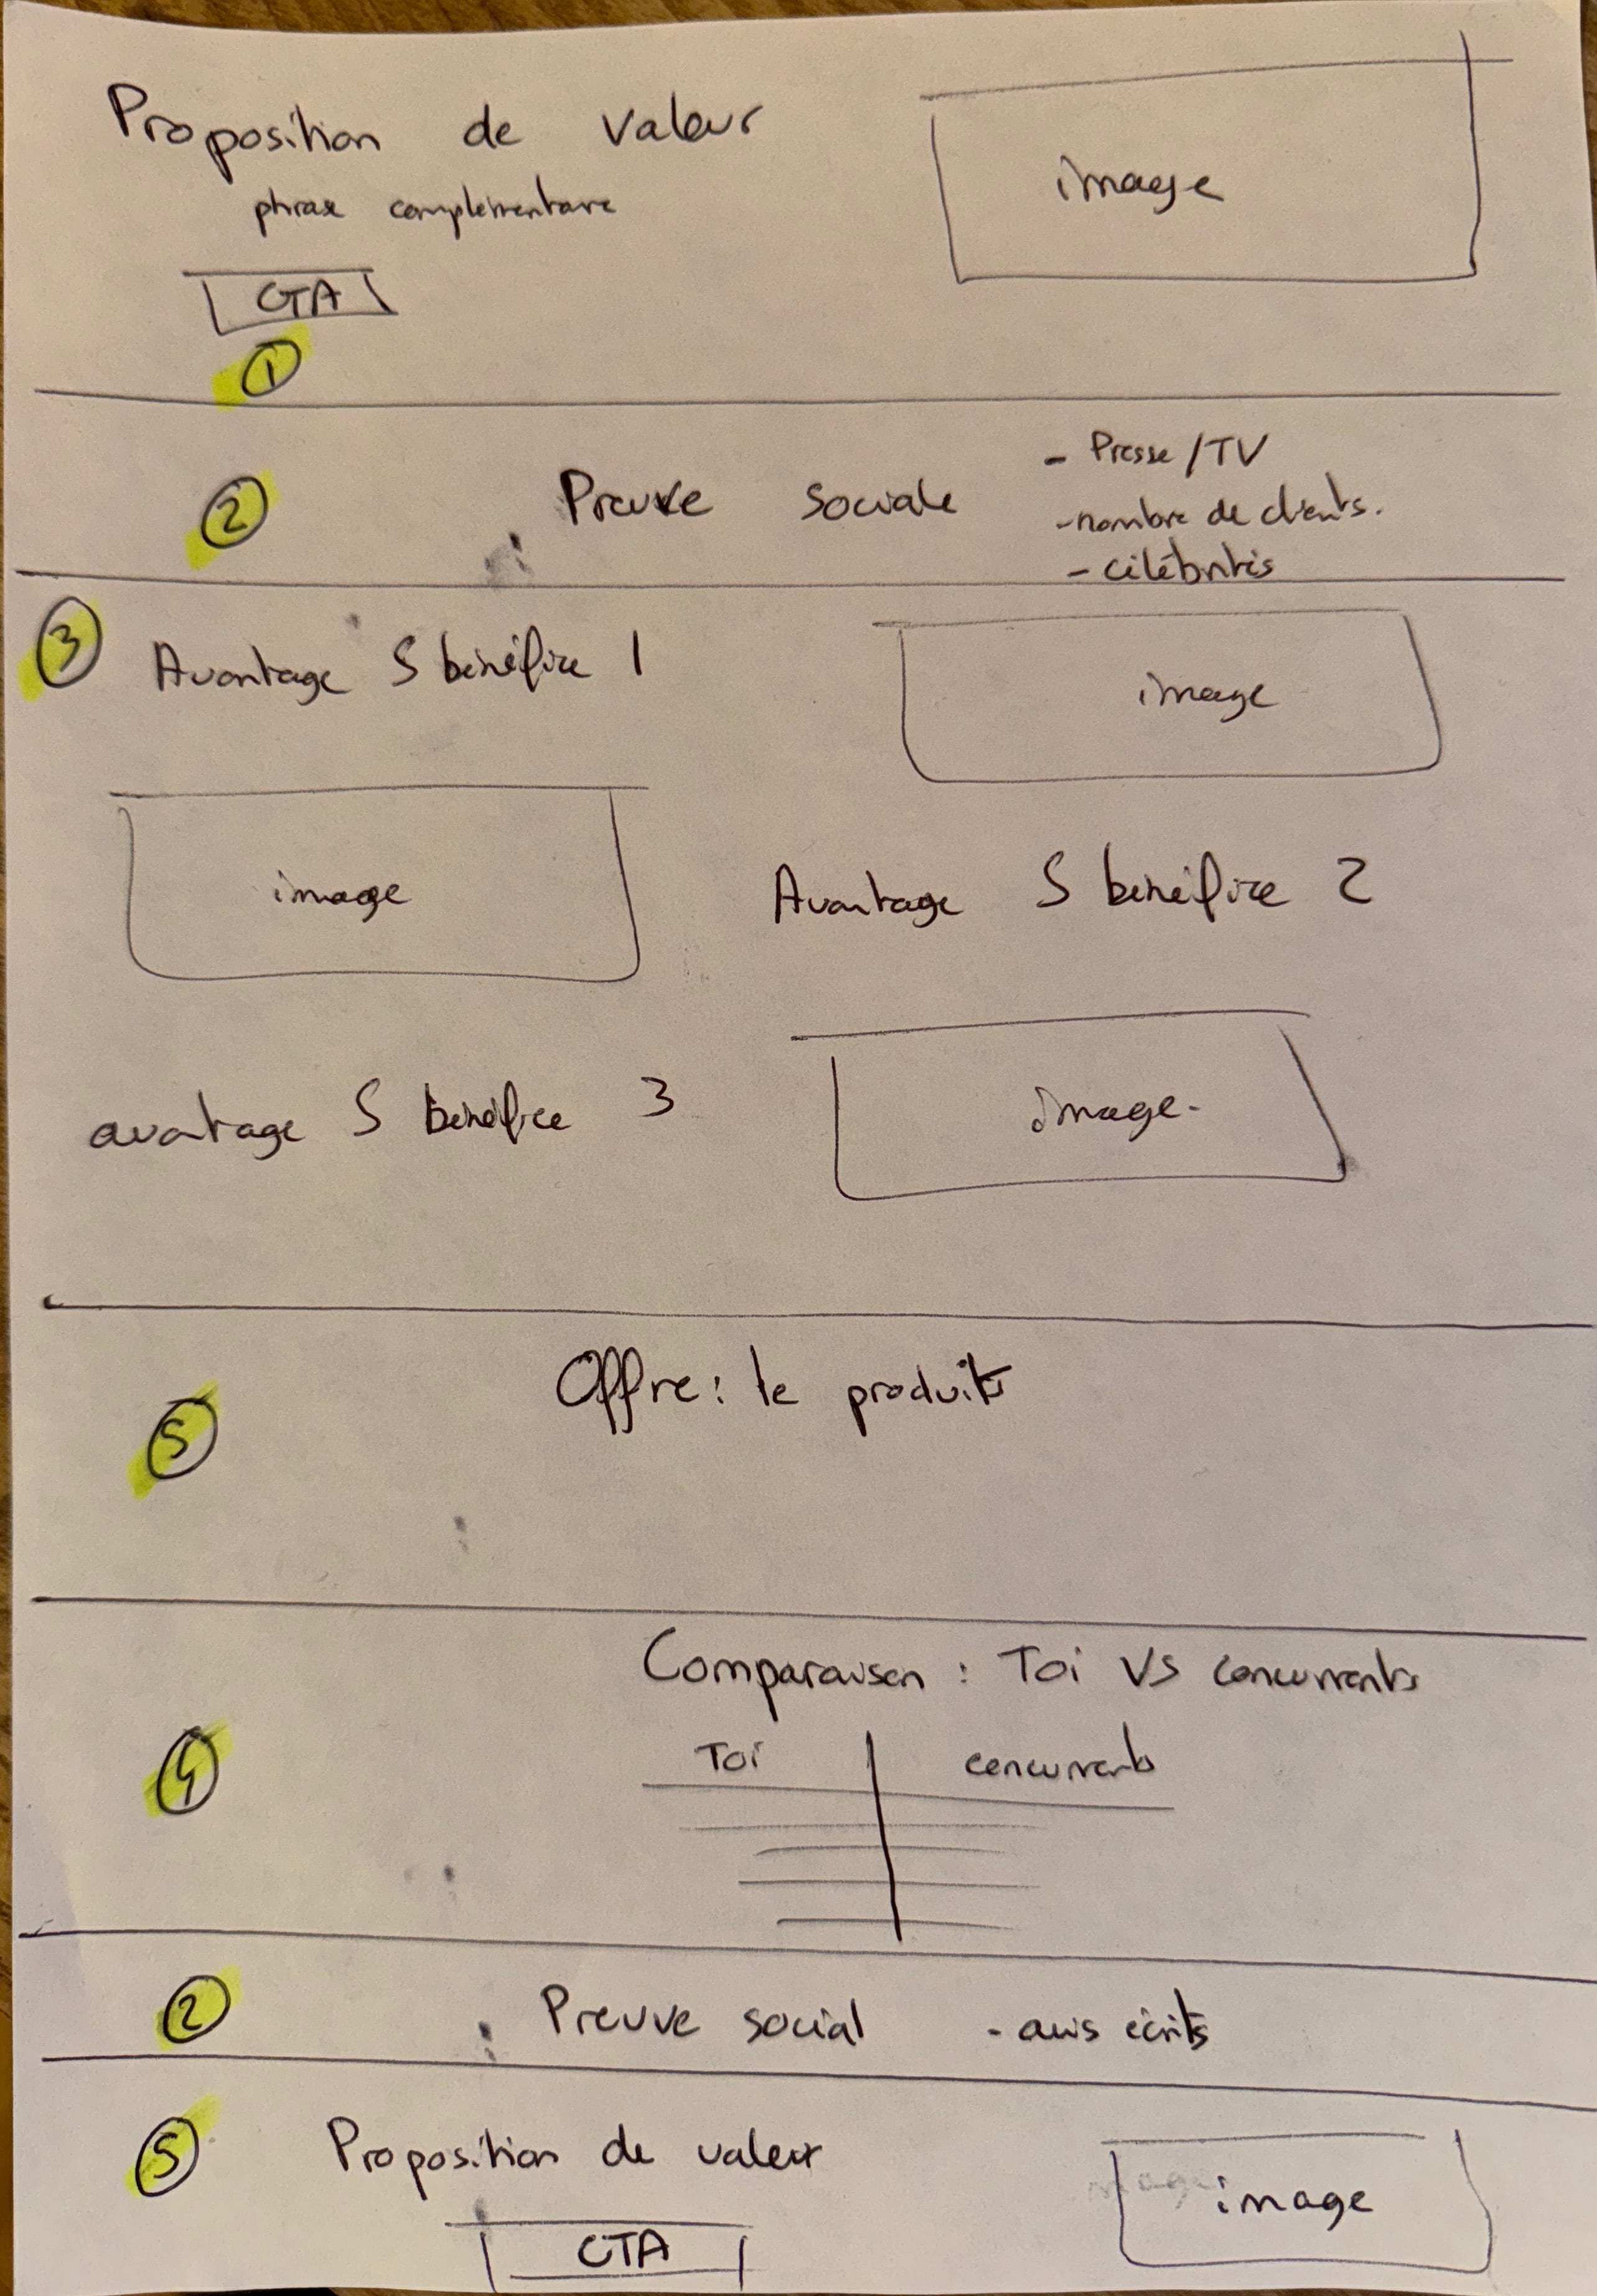 Proposition de valeur
image
phrase complémentaire
CTA
1
2
Preuve sociale
- Presse / TV
- nombre de clients.
- célébrités
3
Avantage S bénéfice 1
image
image
Avantage S bénéfice 2
avantage S bénéfice 3
image.
Offre : le produits
5
Comparaison : Toi VS concurrents
Toi
concurrents
4
2
: Preuve social
- avis écrits
5
Proposition de valeur
image
CTA